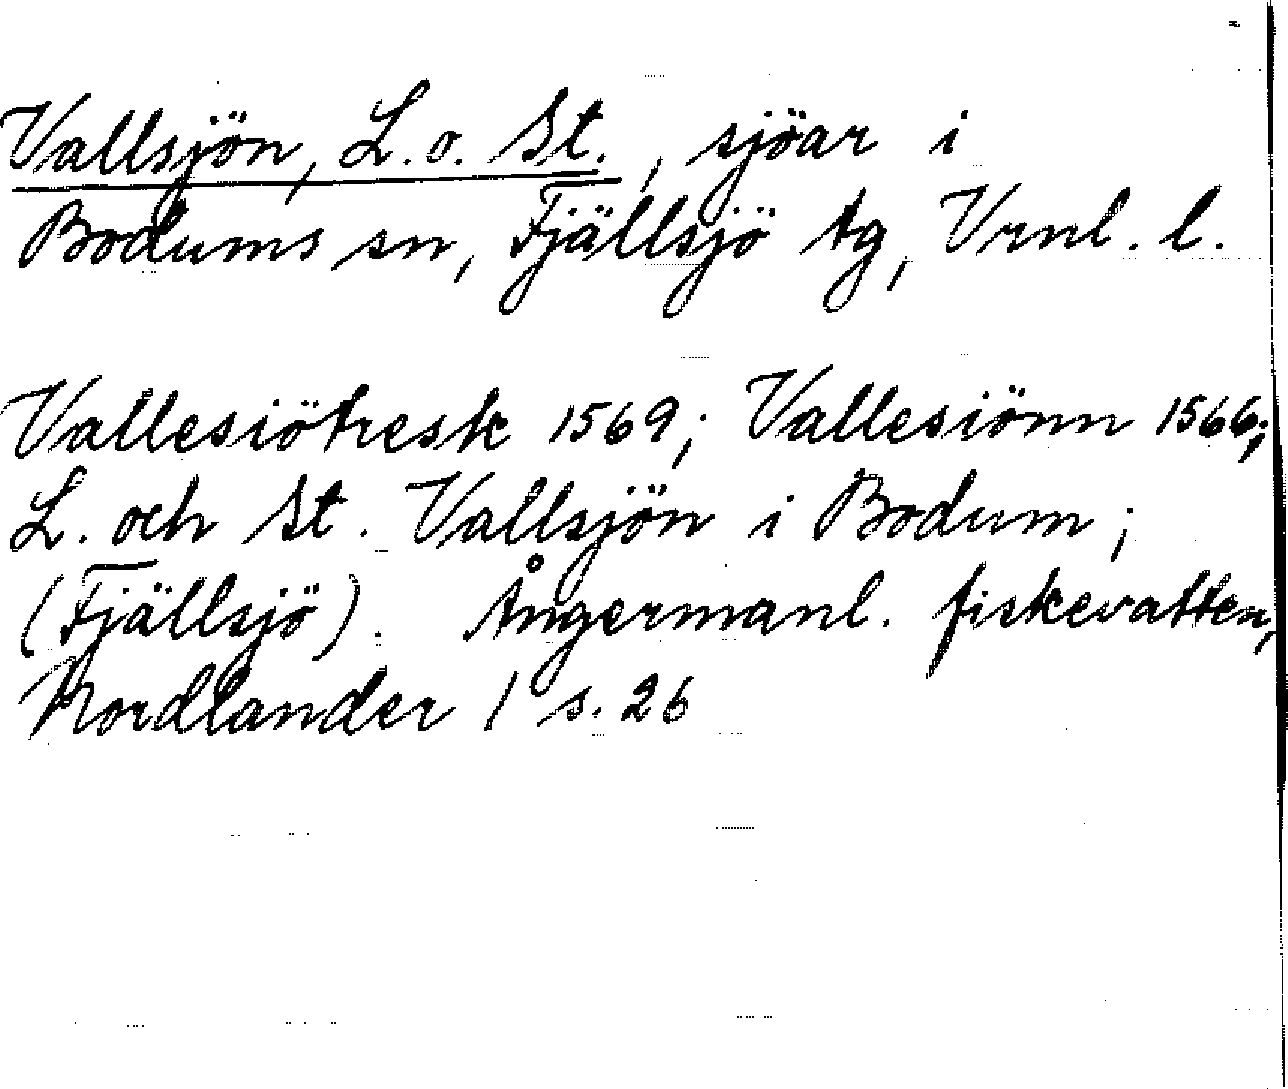 Vallsjön, L. o. St., sjöar i
Bodums sn, Fjällsjö tg, Vrnl. l.
Vallesiötresk 1569; Vallesiönn 1566;
L. och St. Vallsjön i Bodum;
(Fjällsjö). Ångermanl. fiskevatten,
Nordlander / s. 26